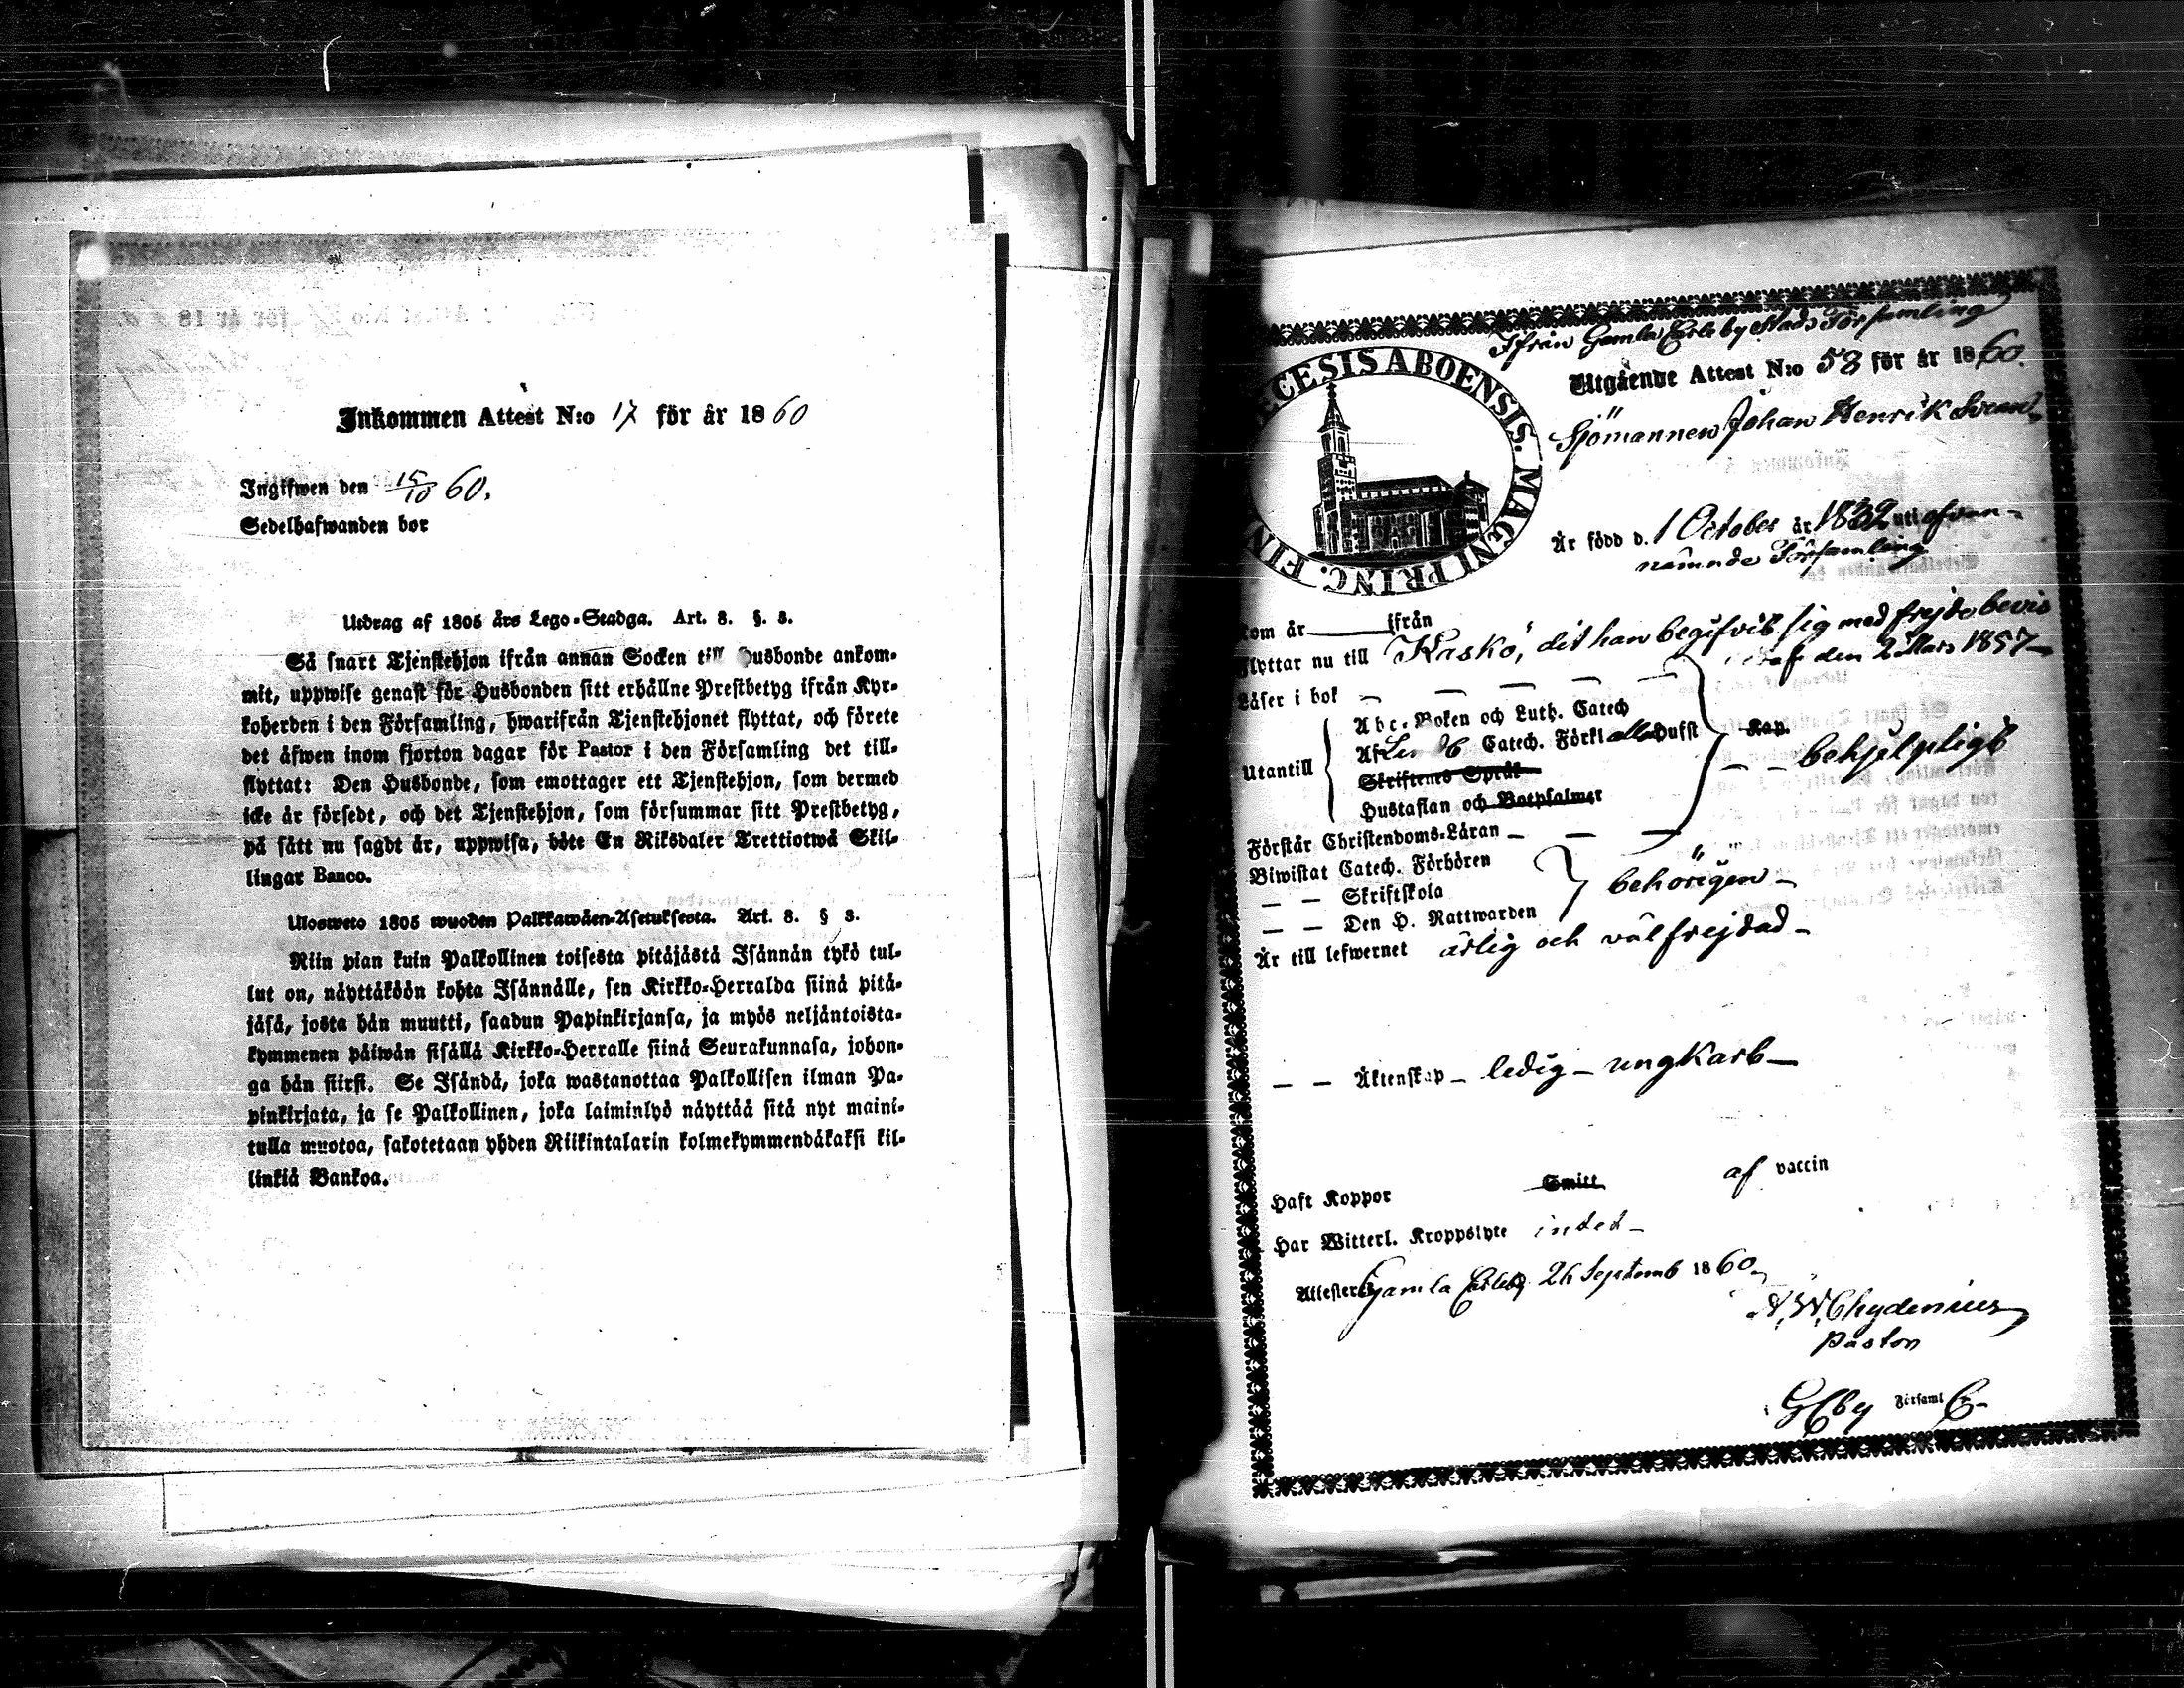 Inkommen Attest N:o 17 för år 1860
Ingifwen den 15/10 60.
Sedelhafwanden bor
Utdrag af 1805 års Lego-Stadga. Art. 8. §. 3.
Så snart Tjenstehjon ifrån annan Socken till Husbonde ankom-
mit, uppwise genast för Husbonden sitt erhållne Prestbetyg ifrån Kyr-
koherden i den Församling, hwarifrån Tjenstehjonet flyttat, och förete
det äfwen inom fjorton dagar för Pastor i den Församling det till-
flyttat: Den Husbonde, som emottager ett Tjenstehjon, som dermed
icke är försedt, och det Tjenstehjon, som försummar sitt Prestbetyg,
på sätt nu sagdt är, uppwisa, böte En Riksdaler Trettiotwå Skil-
lingar Banco.
Ulosweto 1805 wuoden Palkkawäen-Asetuksesta. Art. 8. § 3.
Niin pian kuin Palkollinen toisesta pitäjästä Isännän tykö tul-
lut on, näyttäköön kohta Isännälle, sen Kirkko-Herralda siinä pitä-
jäsä, josta hän muutti, saadun Papinkirjansa, ja myös neljäntoista-
kymmenen päiwän sisällä Kirkko-Herralle siinä Seurakunnasa, johon-
ga hän siirsi. Se Isändä, joka wastanottaa Palkollisen ilman Pa-
pinkirjata, ja se Palkollinen, joka laiminlyö näyttää sitä nyt maini-
tulla muotoa, sakotetaan yhden Riikintalarin kolmekymmendäkaksi kil-
linkiä Bankoa.
Ifrån Gamla Carleby Stads Församling
CESIS ABOENSIS. MAGNI PRINC. FIN
Utgående Attest N:o 58 för år 1860.
Sjömannen Johan Henrik Svan
Är född d. 1 October år 1832 uti ofvan-
nämnde Församling
kom år ifrån
flyttar nu till Kaskö, dit han begifvit sig med frejdebevis
af den 2 Mars 1857
Läser i bok
Abc-Boken och Luth. Catech
Catech. Förkl Hufst Kap.
Utantill
Skriftenes Språk
behjelpligt
Hustaflan och Botpsalmer
Förstår Christendoms-Läran
Biwistat Catech. Förhören
Skriftskola behörigen
Den H. Nattwarden
Är till lefwernet ärlig och välfrejdad
Äktenskap ledig ungkarl
Haft Koppor Smitt af vaccin
Har Witterl. Kroppslyte intet
Attesterar Gamla Carleby 26 Septemb 1860
A. W. Chydenius
Pastor
i GCby Församl